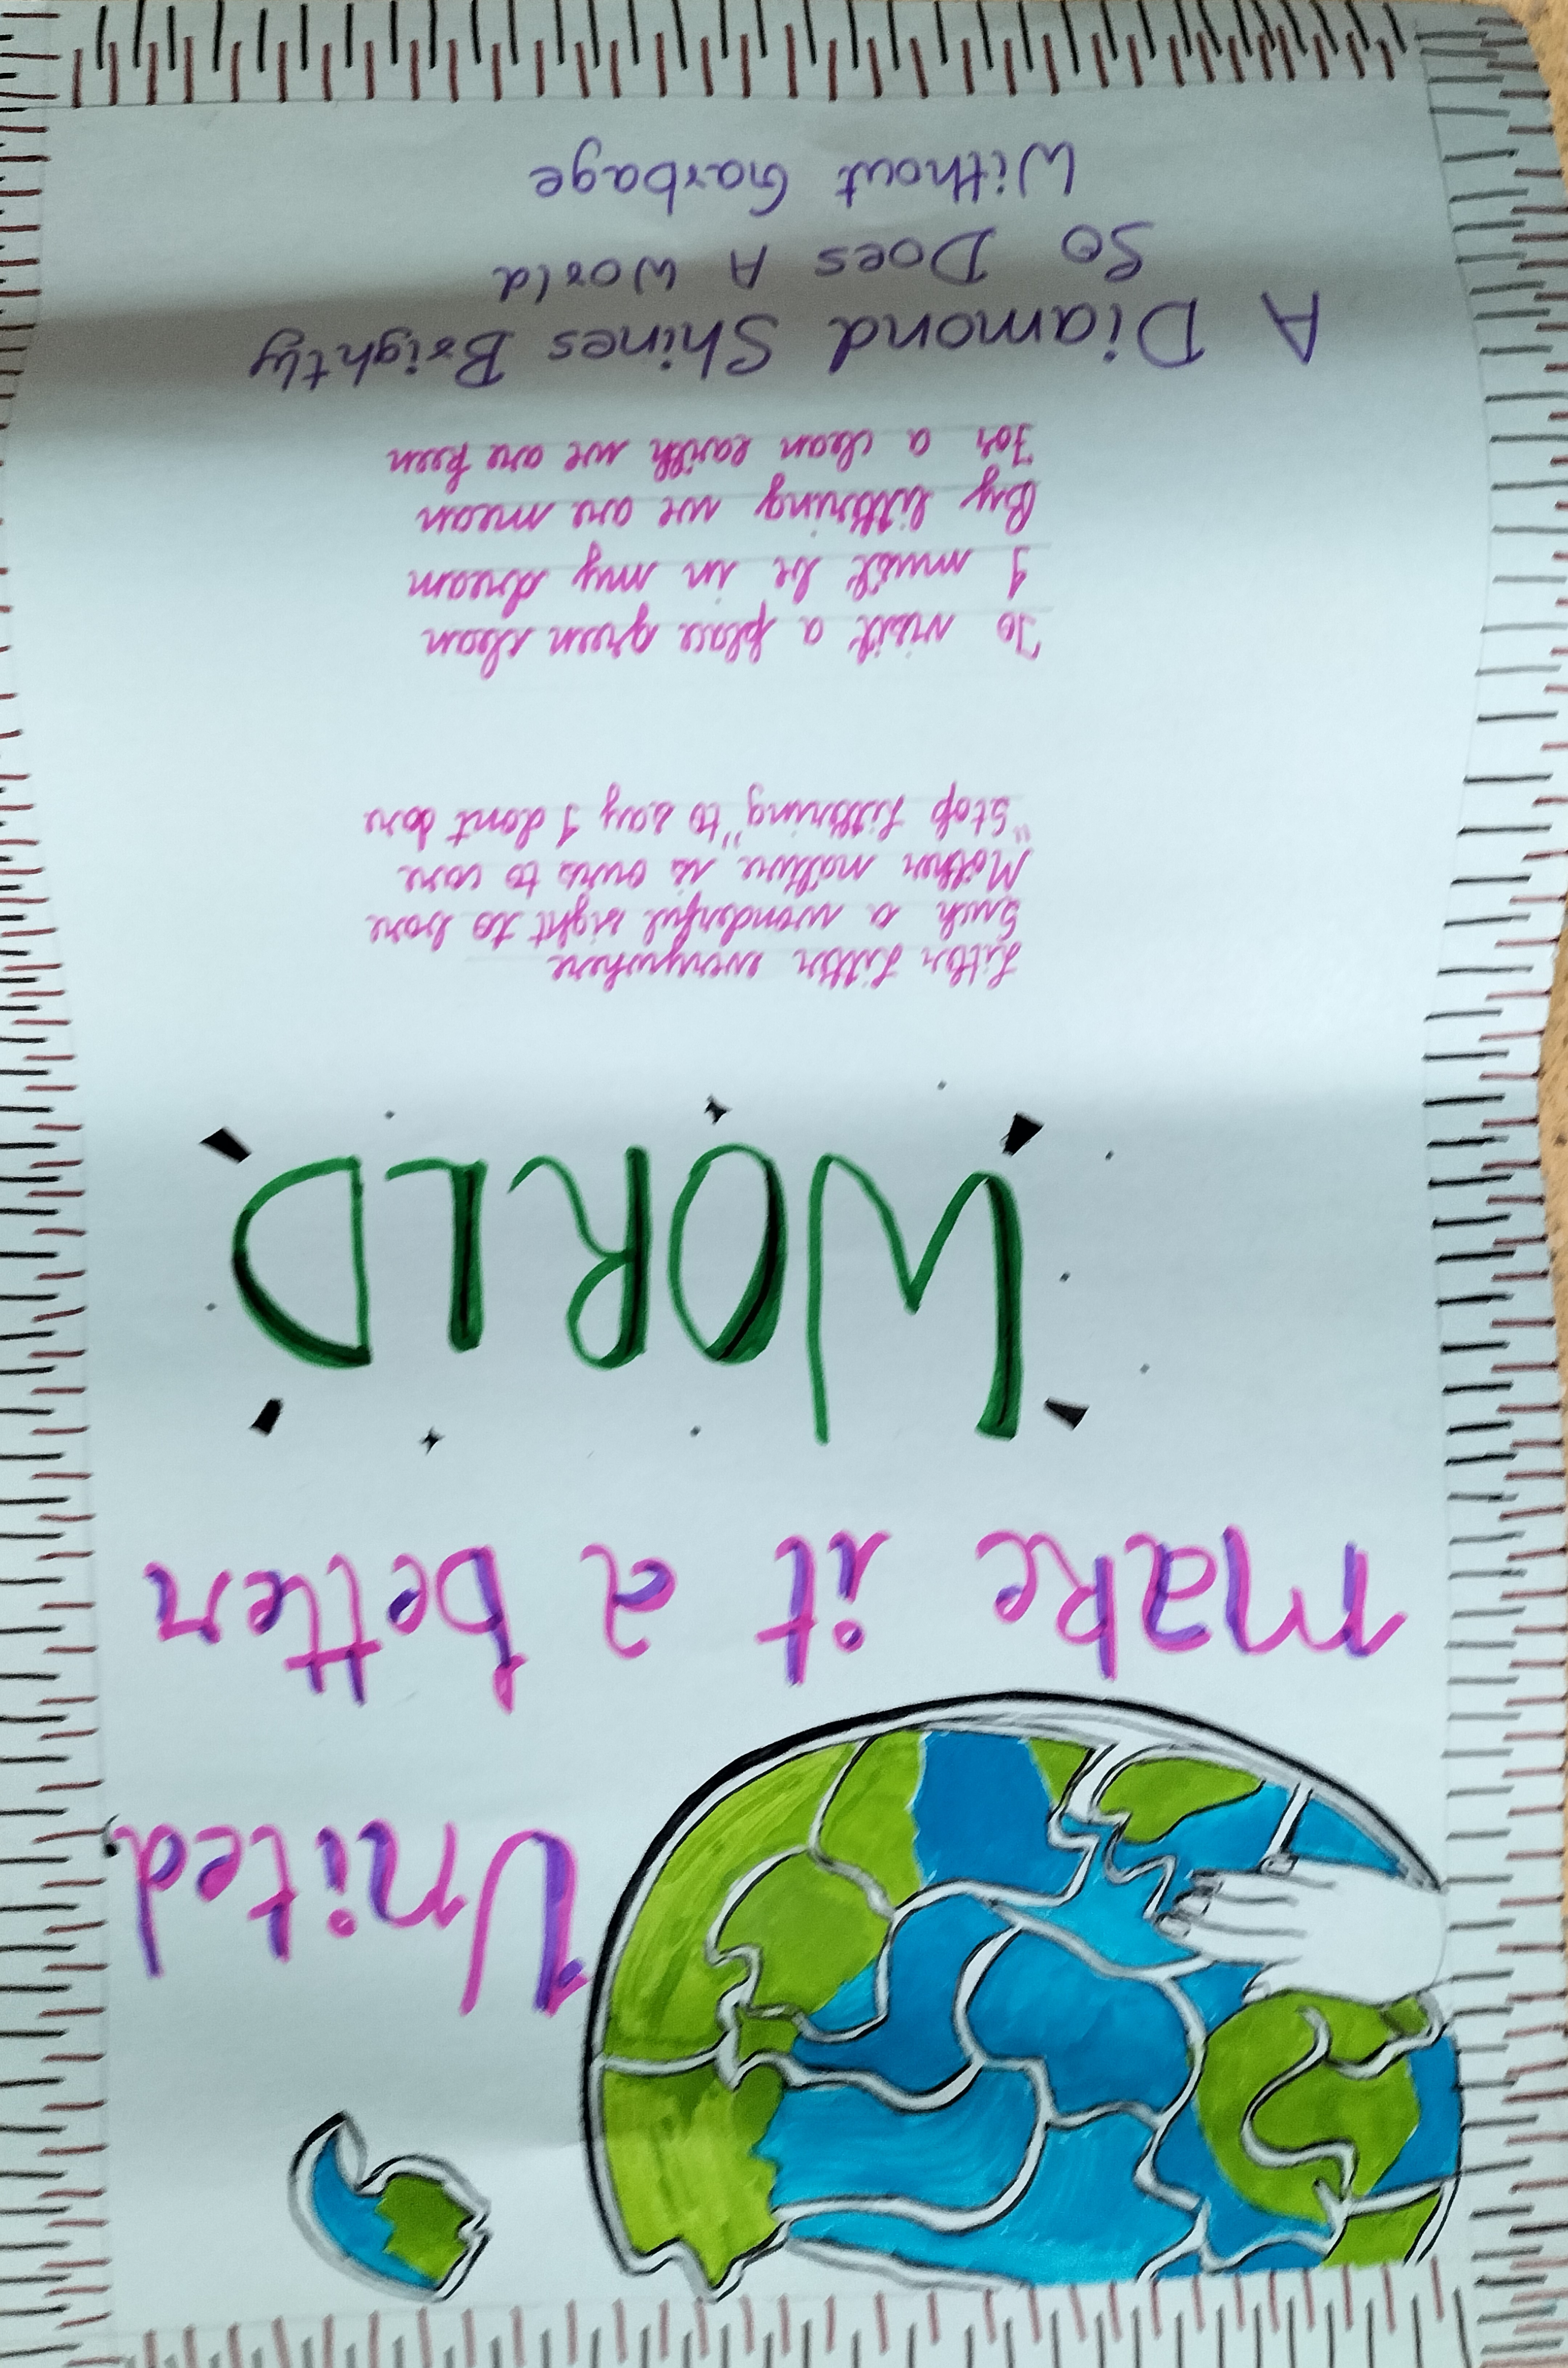 United,
make it a better
WORLD
Litter Litter everywhere
Such a wonderful sight to bare
Mother nature is ours to care
"Stop littering" to say I dont dare
To visit a place green clean
I must be in my dream
By littering we are mean
For a clean earth we are keen
A Diamond Shines Brightly
So Does A World
Without Garbage